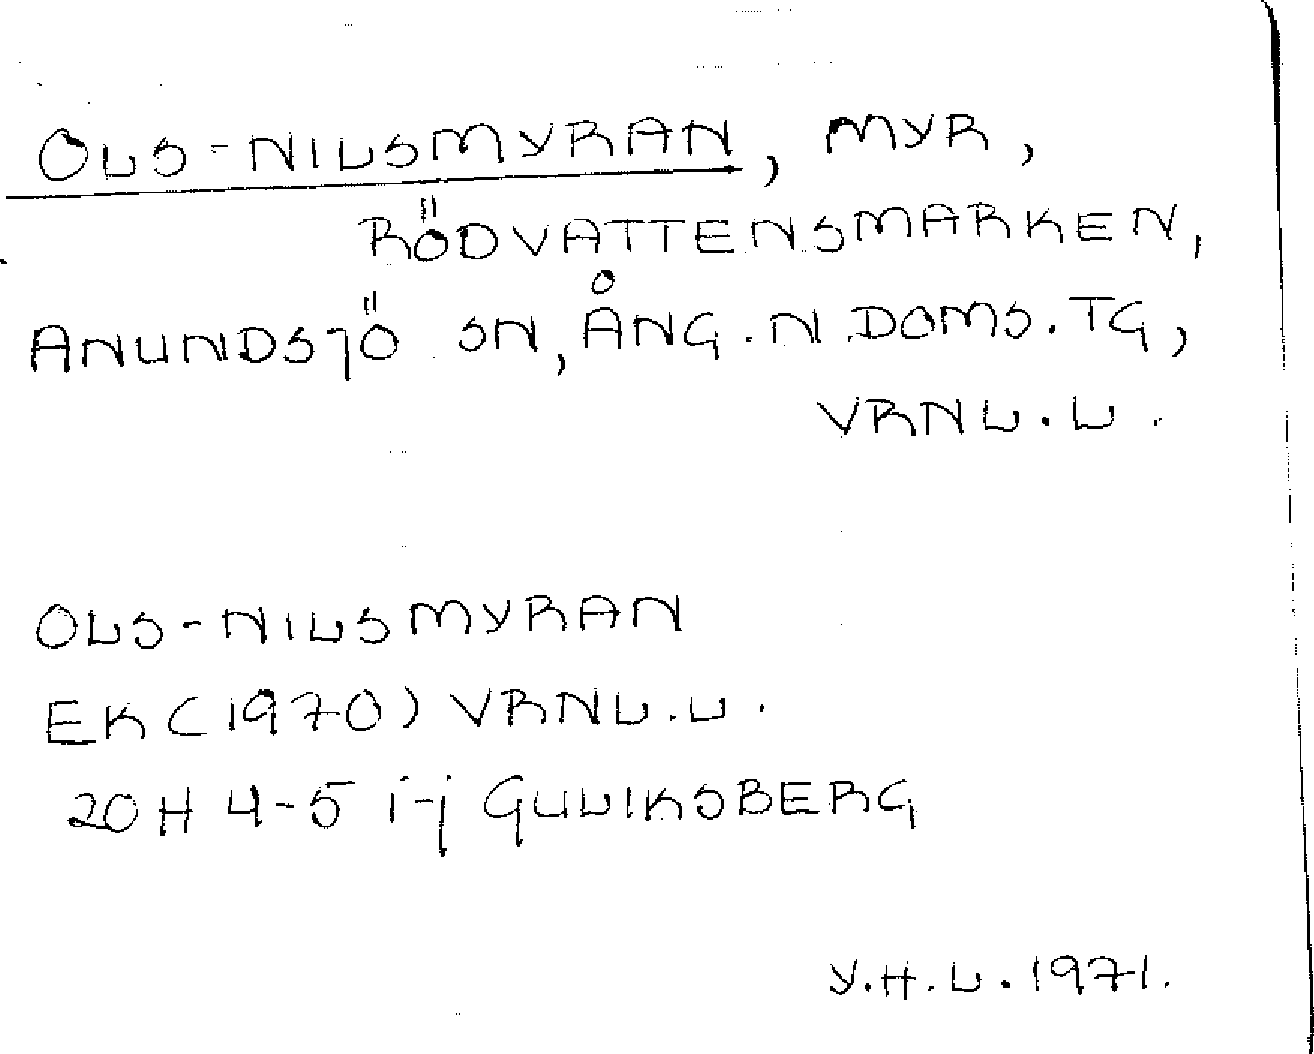 OLS-NILSMYRAN, MYR,
RÖDVATTENSMARKEN,
ANUNDSJÖ SN, ÅNG. N. DOMS. TG,
VRNL. L.
OLS-NILSMYRAN
EK (1970) VRNL. L.
20 H 4-5 i-j GULIKSBERG
Y. H. L. 1971.